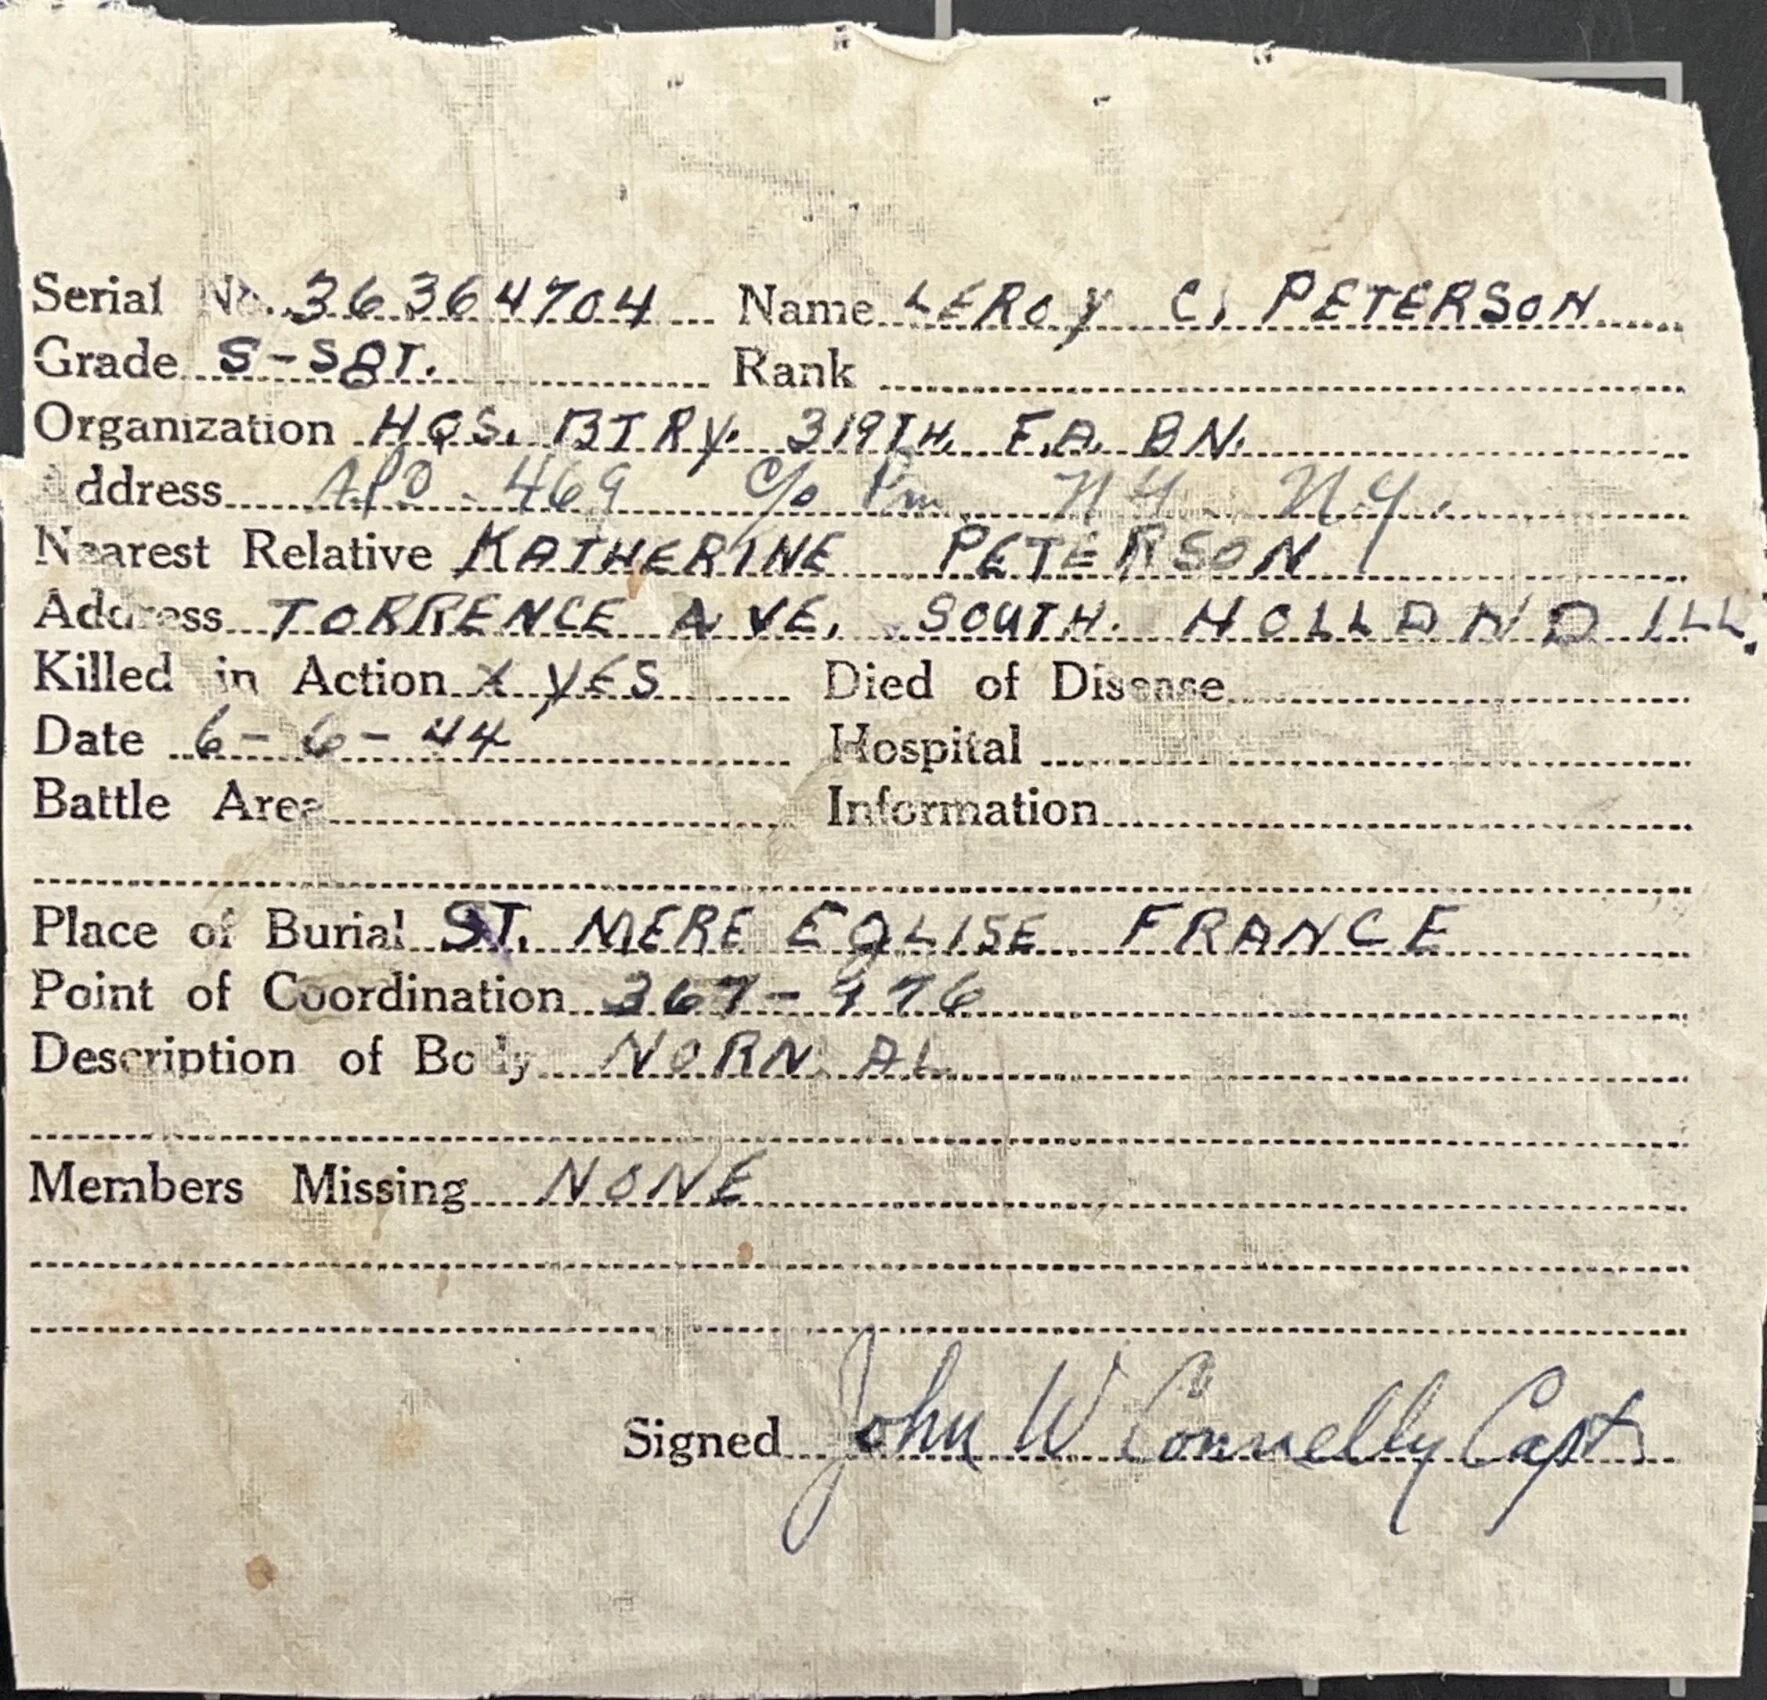 Serial No. 36364704 Name LEROY C. PETERSON
Grade S-SGT. Rank
Organization HQS. BTRY. 319TH. F.A. BN.
Address APO 469 c/o Pm NY NY.
Nearest Relative KATHERINE PETERSON
Address TORRENCE AVE. SOUTH. HOLLAND ILL.
Killed in Action X YES Died of Disease
Date 6-6-44 Hospital
Battle Area Information
Place of Burial ST. MERE EGLISE FRANCE
Point of Coordination 367-976
Description of Body NORNAL
Members Missing NONE
Signed John W Connelly Capt